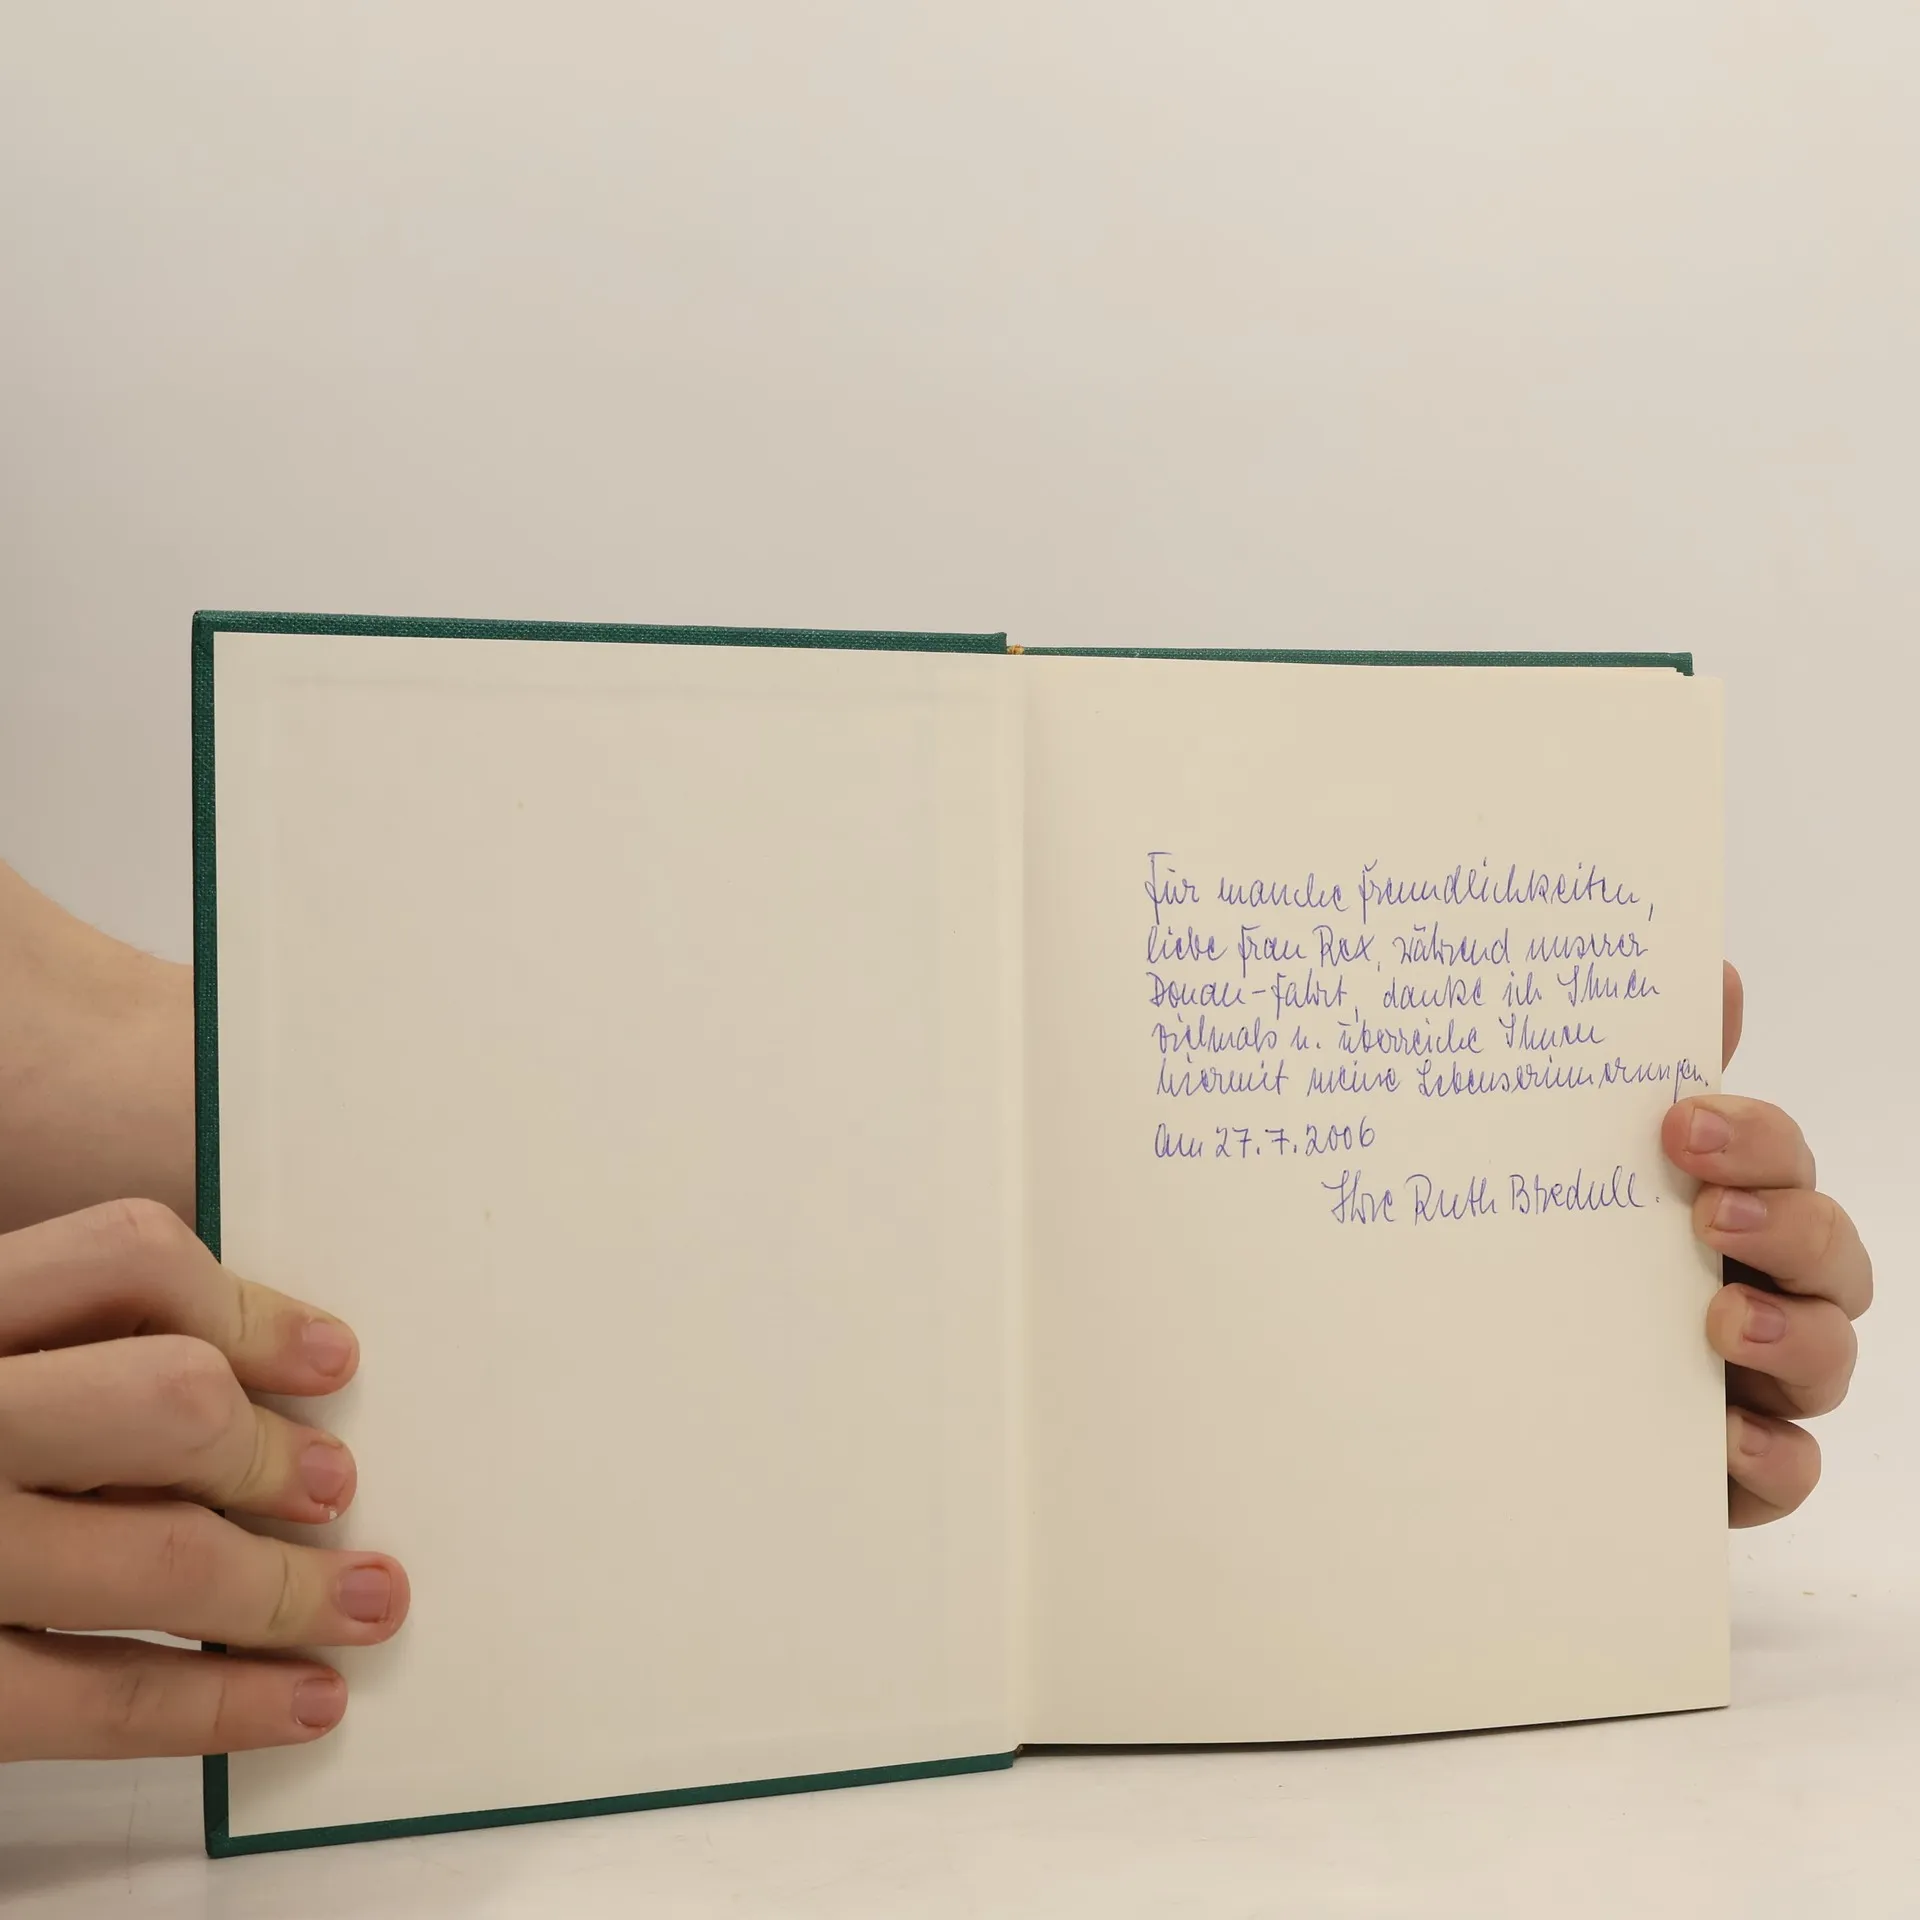 Für manche Freundlichkeiten,
liebe Frau Rex, während unserer
Donau-Fahrt, danke ich Ihnen
vielmals u. überreiche Ihnen
hiermit meine Lebenserinnerungen.
Am 27.7.2006
Ihre Ruth Bredull.